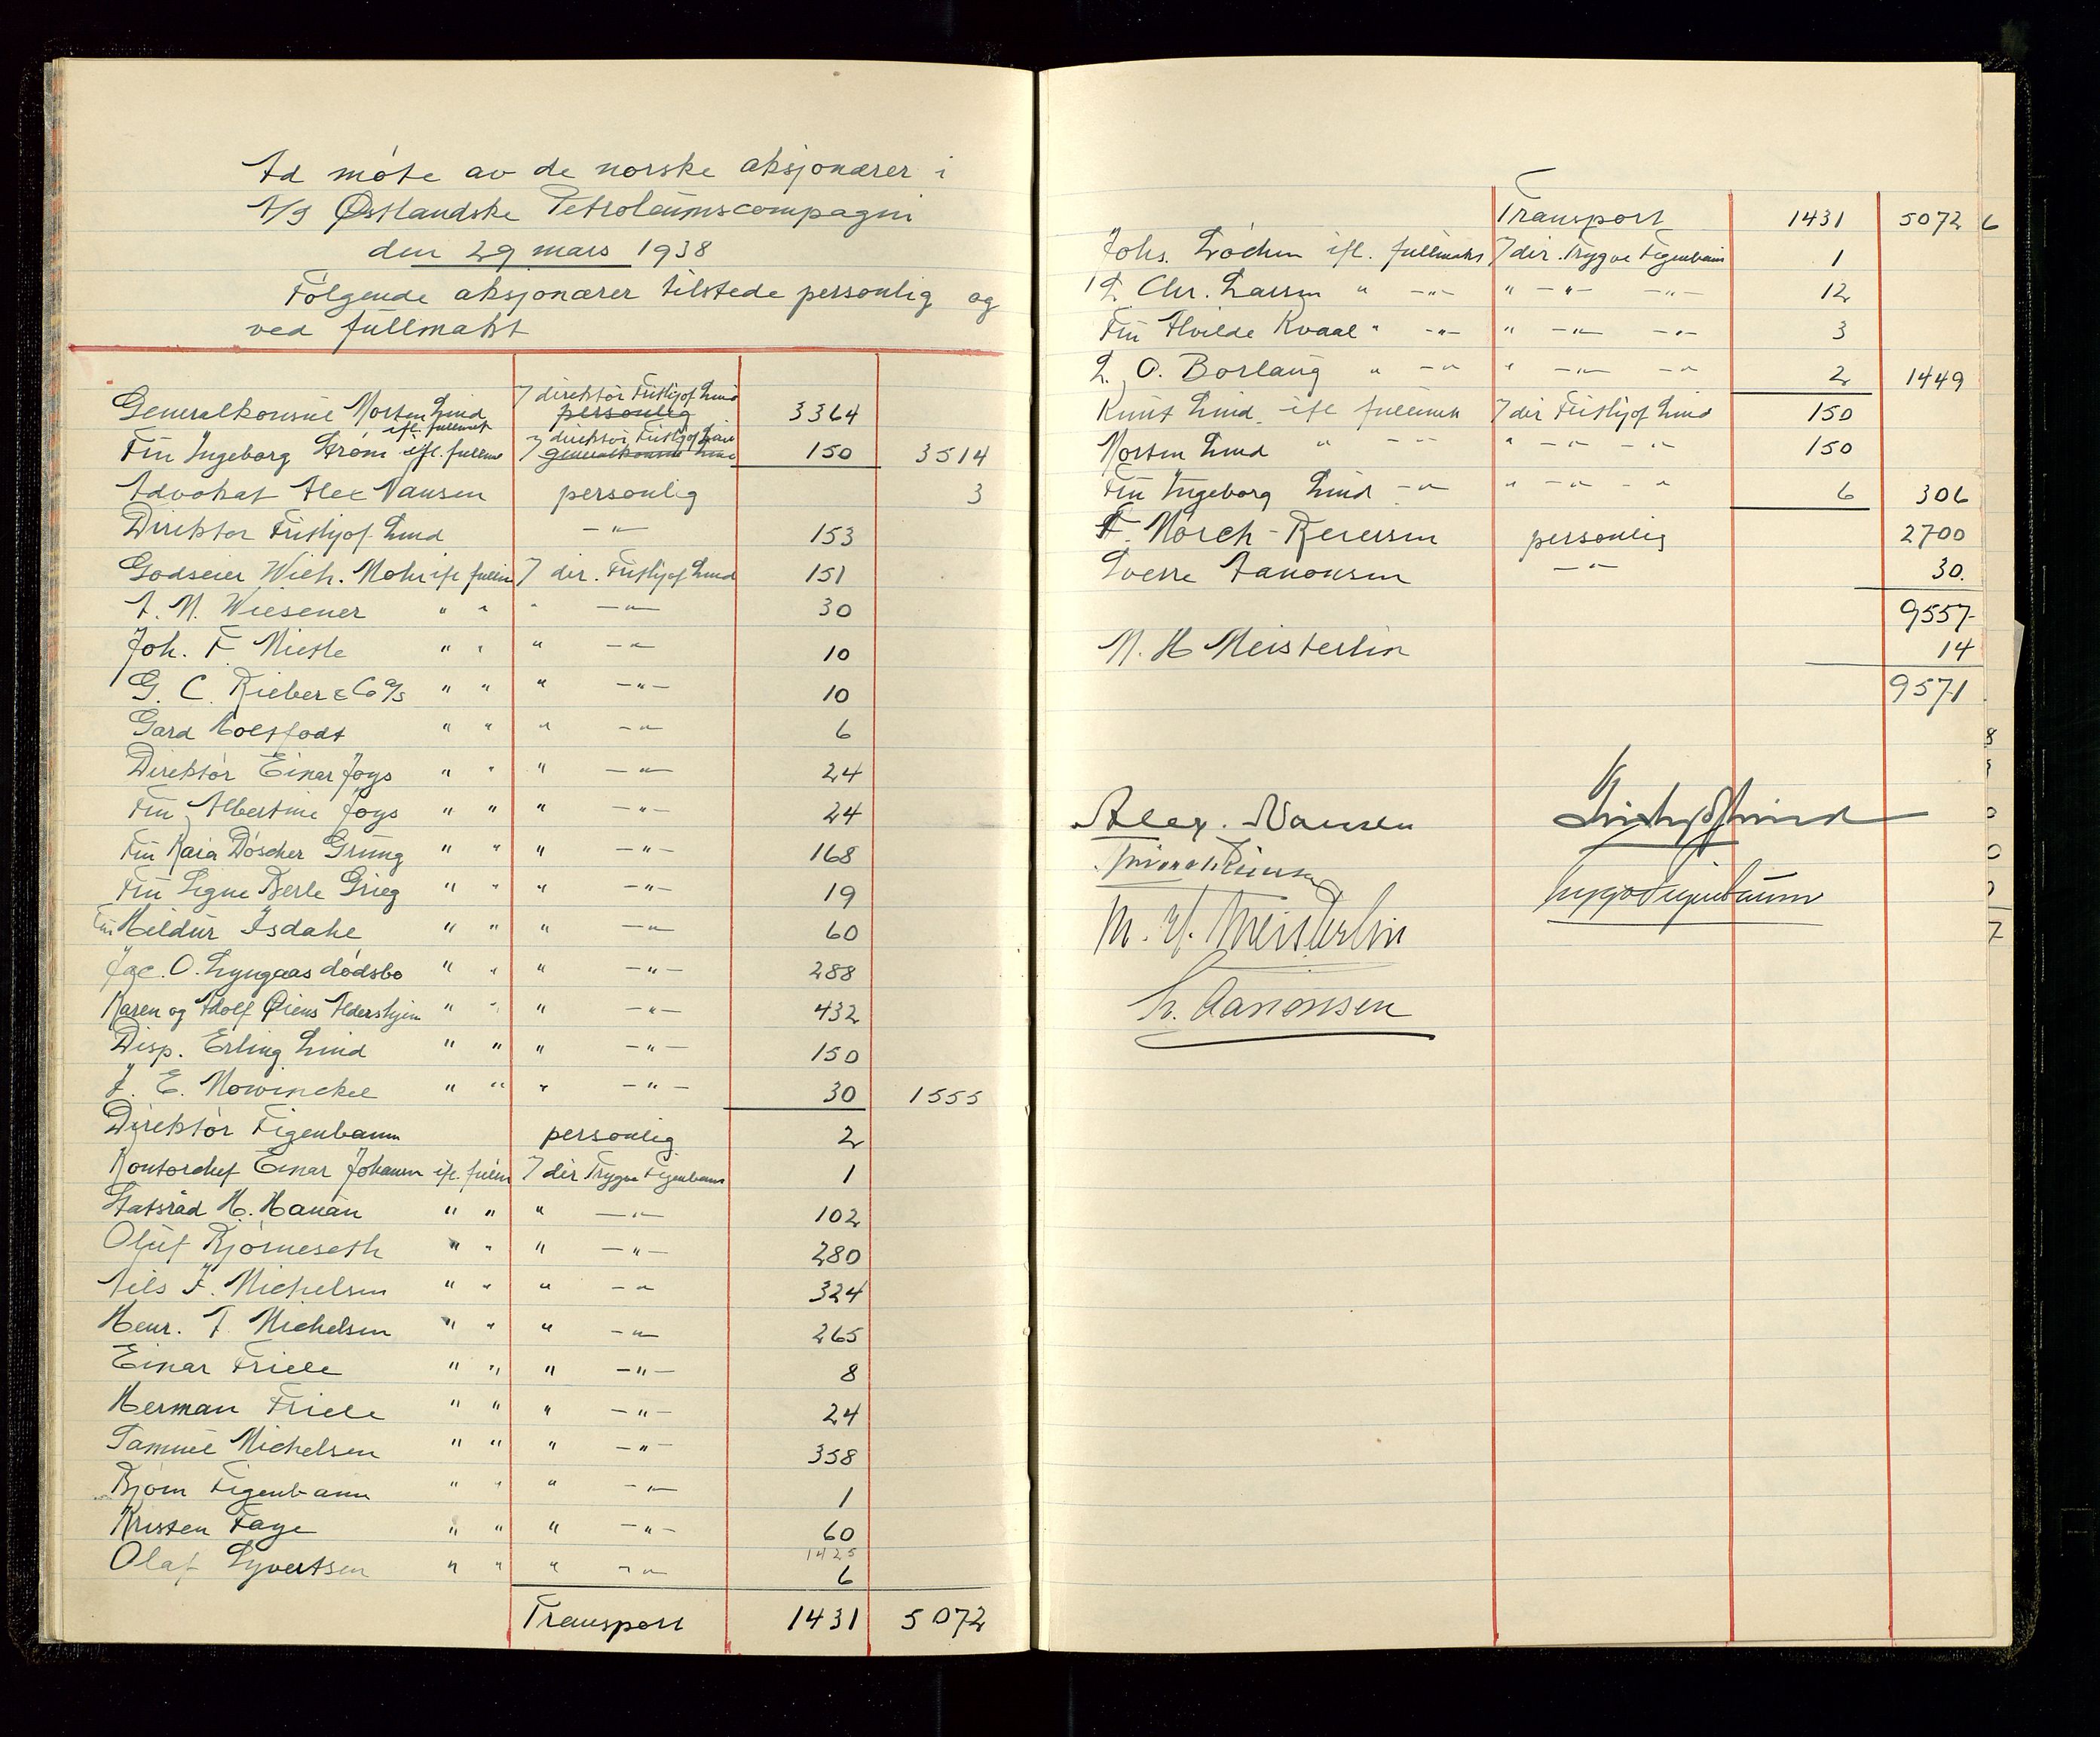 Ad møte av de norske aksjonærer i
A/S Østlandske Petroleumscompagni
den 29 mars 1938
Følgende aksjonærer tilstede personlig og
ved fullmakt
Generalkonsul Morten Lind ifl. fullmakt 7 direktør Fridtjof Lind personlig 3364
Fru Ingeborg Strøm ifl. fullm 7 direktør Fridtjof Lind generalkonsul Lind 150 3514
Advokat Alex Nansen personlig 3
Direktør Fridtjof Lind -"- 153
Godseier Wilh. Mohr ifl fullm 7 dir. Fridtjof Lind 151
A. M. Wiesener " " " -"- 30
Joh. F. Mietle " " " -"- 10
G. C. Rieber & Co A/S " " " -"- 10
Gard Holtfodt " " " -"- 6
Direktør Einar Joys " " " -"- 24
Fru Albertine Joys " " " -"- 24
Fru Kaia Døscher Grung " " " -"- 168
Fru Signe Berle Grieg " " " -"- 19
Fru Hildur Isdahl " " " -"- 60
Jac. O. Lyngaas dødsbo " " " -"- 288
Karen og Adolf Øiens Aldershjem " " " -"- 432
Disp. Erling Lind " " " -"- 150
J. E. Mowinckel " " " -"- 30 1555
Direktør Figenbaum personlig 2
Kontorchef Einar Johansen ifl. fullm 7 dir Trygve Figenbaum 1
Statsråd H. Hauan " " " -"- 102
Oluf Bjørneseth " " " -"- 280
Nils J. Michelsen " " " -"- 324
Henr. J. Michelsen " " " -"- 265
Einar Friele " " " -"- 8
Herman Friele " " " -"- 24
Samuel Michelsen " " " -"- 358
Bjørn Figenbaum " " " -"- 1
Kristen Faye " " " -"- 60
1425
Olaf Syvertsen " " " -"- 6
Transport 1431 5072
Transport 1431 5072 6
Johs. Lochen ifl. fullmakt 7 dir. Trygve Figenbaum 1
L. Chr. Larsen " -"- " -"- -"- 12
Fru Alvilde Kvaal " -"- " -"- -"- 3
L. O. Borlaug " -"- " -"- -"- 2 1449
Knut Lind ifl fullmakt 7 dir Fridtjof Lind 150
Morten Lind " -"- " -"- -"- 150
Fru Ingeborg Lind -"- " -"- -"- 6 306
F. Mørch-Reiersen personlig 2700
Sverre Aanonsen -"- 30.
9557
M. H Meisterlin 14
9571
Alex. Nansen
Fridtjof Lind
Trygve Figenbaum
M. H. Meisterlin
S. Aanonsen